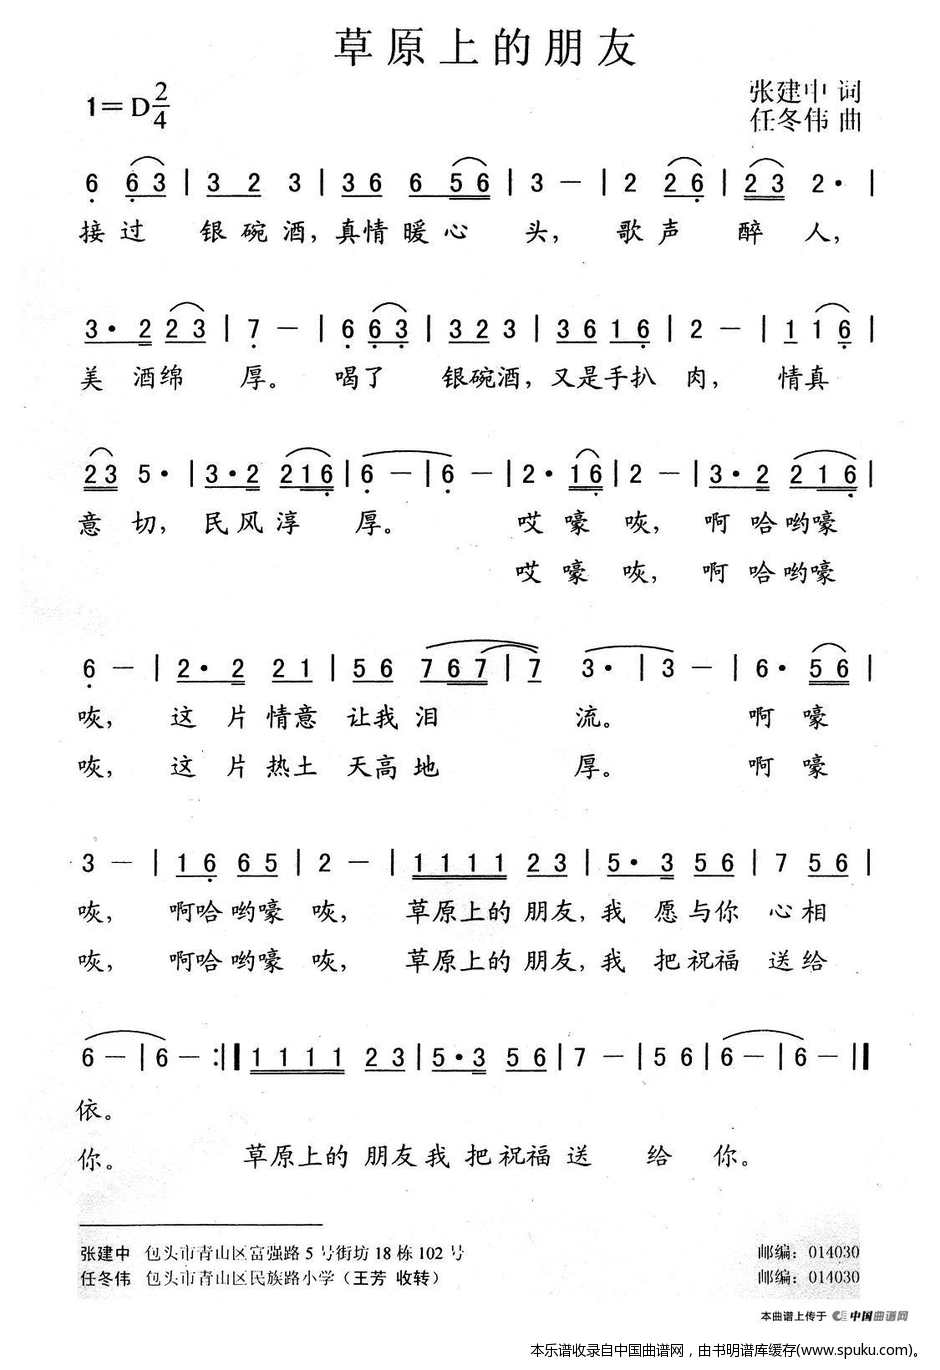 草原上的朋友
1=D 2/4
张建中 词
任冬伟 曲
6 6 3 | 3 2 3 | 3 6 6 5 6 | 3 — | 2 2 6 | 2 3 2· |
接过 银碗酒,真情暖心 头, 歌声 醉 人,
3· 2 2 3 | 7 — | 6 6 3 | 3 2 3 | 3 6 1 6 | 2 — | 1 1 6 |
美 酒绵 厚。 喝了 银碗酒,又是手扒 肉, 情真
2 3 5· | 3· 2 2 1 6 | 6 — | 6 — | 2· 1 6 | 2 — | 3· 2 2 1 6 |
意 切, 民风淳 厚。 哎 嚎 咴, 啊 哈哟嚎
哎 嚎 咴, 啊 哈哟嚎
6 — | 2· 2 2 1 | 5 6 7 6 7 | 7 3· | 3 — | 6· 5 6 |
咴, 这 片 情意 让我 泪 流。 啊 嚎
咴, 这 片 热土 天高 地 厚。 啊 嚎
3 — | 1 6 6 5 | 2 — | 1 1 1 1 2 3 | 5· 3 5 6 | 7 5 6 |
咴, 啊哈哟嚎 咴, 草原上的 朋友,我 愿与你 心相
咴, 啊哈哟嚎 咴, 草原上的 朋友,我 把祝福 送给
6 — | 6 — :| 1 1 1 1 2 3 | 5· 3 5 6 | 7 — | 5 6 | 6 — | 6 — |
依。
你。 草原上的 朋友我 把祝福 送 给 你。
张建中 包头市青山区富强路5号街坊18栋102号 邮编:014030
任冬伟 包头市青山区民族路小学(王芳 收转) 邮编:014030
本曲谱上传于 中国曲谱网
本乐谱收录自中国曲谱网,由书明谱库缓存(www.spuku.com)。